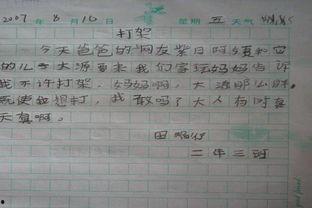 2007 年 8 月 10 日 星期 五 天气
打架
今天爸爸的网友紫日叫颂和它
的儿子大源要来我们家玩妈妈告诉
我不许打架,妈妈啊,大源那么胖,
就使我想打,我敢吗?大人有时真
天真啊。
田
二年三班